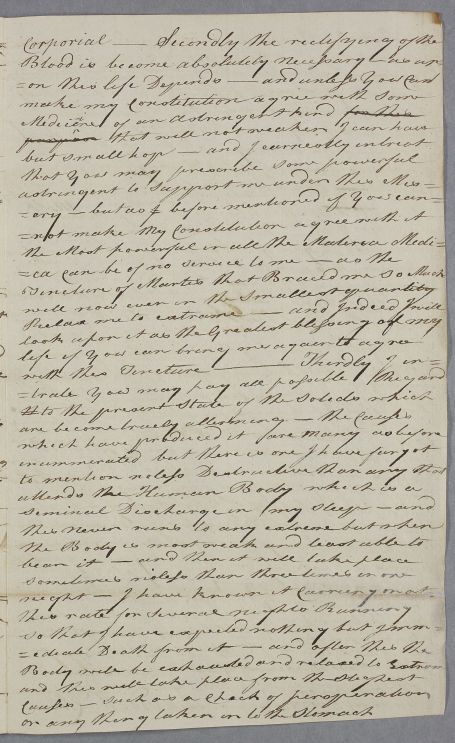 Corporial — Secondly the reclifying of the
Blood is become absolutely necessary — as up
=on this life Depends — and unless You Can
make my Constitution agree with some
Medicine of an astringent kind
that will not weaken I can have
but small hop — and I earnestly intreat
that You may prescribe some powerful
astringent to Support me under this Mis=
=ery — but as I before mentioned if You can=
=not make My Constitution agree with it
the Most powerful in all the Materea Medi=
=ca Can be of no service to me — as the
Tincture of Martis that Braced me So Much
will now even in the Smallest quantity
Relax me to extrame — and Indeed I will
look upon it as the Greatest blessing of my
life if You can bring me again to agree
with this Tincture — Thirdly I in=
=trate You may pay all possible Regard
to the present State of the Solods which
are become truely allarming — the Causes
which have produced it are many as before
innumerated but there is one I have forgot
to mention noless Destructive than any that
attends the Human Body which is a
Seminal Discharge in my sleep — and
this never runs to any extreme but when
the Body is most weak and least able to
bear it — and then it will take place
sometimes noless than three times in one
neight — I have known it Carrying on at
this rate for Several neights Running
so that I have expected nothing but Imm=
=ediate Death from it — and after this the
Body will be exhausted and relaxed to
and this will take place from the Slightest
Causes — Such as a Check of perspiration
or any thing taken in to the Stomach